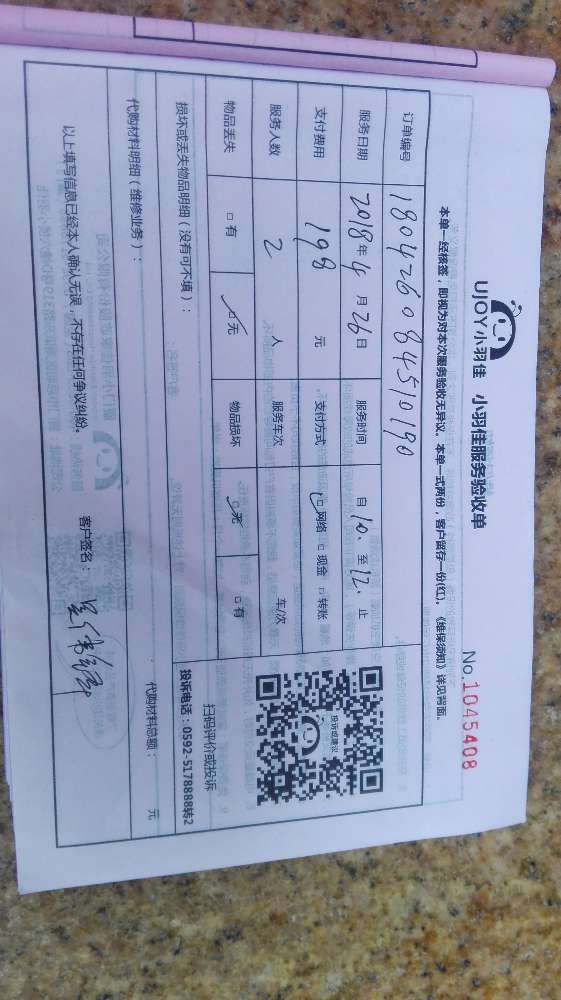 UJOY小羽佳 小羽佳服务验收单
No.1045408
本单一经核签，即视为对本次服务验收无异议。本单一式两份，客户留存一份(红)。《维保须知》详见背面。
订单编号 180426084510190
服务日期 2018年4月26日 服务时间 自10、至12、止
支付费用 198 元 支付方式 ☑网络 □现金 □转账
服务人数 2 人 服务车次 车/次
物品丢失 □有 ☑无 物品损坏 ☑无 □有
投诉或建议
扫码评价或投诉
投诉电话：0592-5178888转2
损坏或丢失物品明细（没有可不填）：
代购材料明细（维修业务）： 代购材料总额： 元
以上填写信息已经本人确认无误，不存在任何争议纠纷。 客户签名：